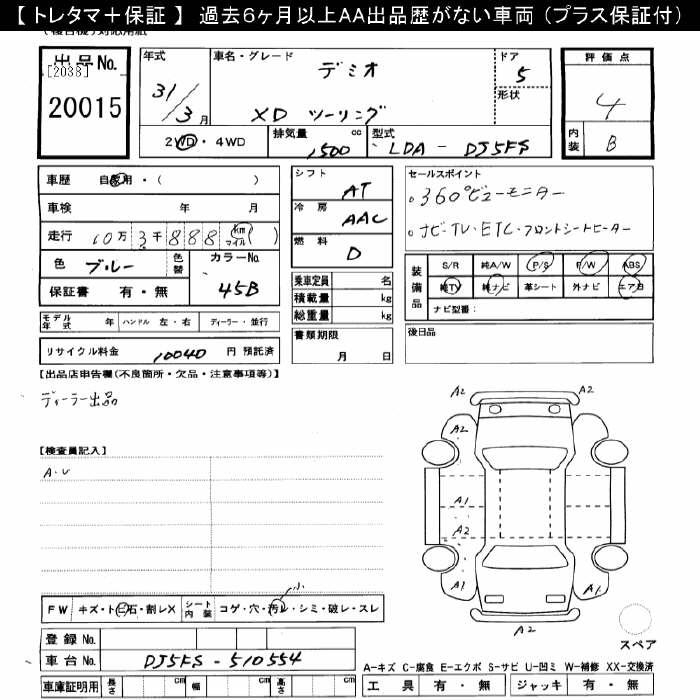 【 トレタマ＋保証 】 過去6ヶ月以上AA出品歴がない車両（プラス保証付）
出品No.
[2038]
20015
年式
31/3月
車名・グレード
デミオ
XD ツーリング
ドア
5
形状
評価点
4
内装
B
2WD・4WD
排気量
1500 cc
型式
LDA - DJ5FS
車歴 自家用・( )
車検 年 月
走行 10万 3千 888 (km マイル)
色 ブルー 色替 カラーNo. 45B
保証書 有・無
シフト AT
冷房 AAC
燃料 D
乗車定員 名
積載量 kg
総重量 kg
セールスポイント
。360°ビューモニター
。ナビ・TV・ETC・フロントシートヒーター
装備品
S/R 純A/W P/S P/W ABS
純TV 純ナビ 革シート 外ナビ エアB
ナビ型番：
モデル年式 年 ハンドル 左・右 ディーラー・並行
リサイクル料金 10040 円 預託済
書類期限
月 日
後日品
【出品店申告欄(不良箇所・欠品・注意事項等)】
ディーラー出品
【検査員記入】
A・U
A2
A2
A2
A2
A1
A2
A1
A1
A2
スペア
FW キズ・ト・石・割レX シート内装 コゲ・穴・汚レ・シミ・破レ・スレ
小
登録 No.
車台 No. DJ5FS - 510554
車庫証明用 長さ cm 幅 cm 高さ cm
A-キズ C-腐食 E-エクボ S-サビ U-凹ミ W-補修 XX-交換済
工具 有・無 ジャッキ 有・無